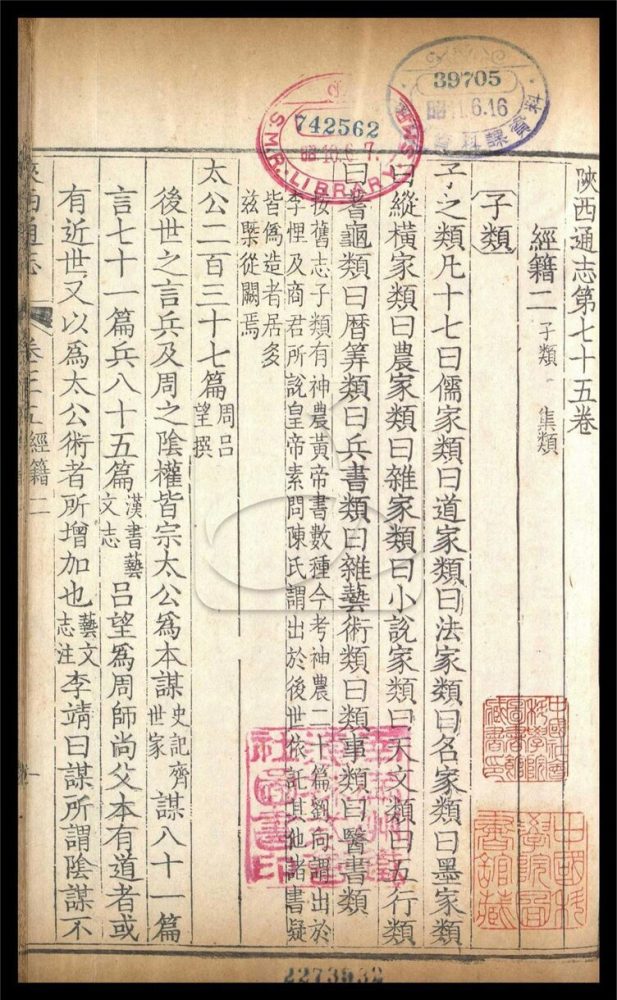 陝西通志第七十五卷
經籍二 子類 集類
子類
子之類凡十七曰儒家類曰道家類曰法家類曰名家類曰墨家類
曰縱橫家類曰農家類曰雜家類曰小說家類曰天文類曰五行類
曰蓍龜類曰曆筭類曰兵書類曰雜藝術類曰類事類曰醫書類
按舊志子類有神農黃帝書數種今考神農二十篇劉向謂出於
李悝及商君所說皇帝素問陳氏謂出於後世依託其他諸書疑
皆偽造者居多
茲槩從闕焉
太公二百三十七篇 周呂望撰
後世之言兵及周之陰權皆宗太公為本謀 史記齊世家 謀八十一篇
言七十一篇兵八十五篇 漢書藝文志 呂望為周師尚父本有道者或
有近世又以為太公術者所增加也 藝文志注 李靖曰謀所謂陰謀不
陝西通志 卷七十五經籍二 一
S.M.R. LIBRARY
742562
昭10.6.7.
39705
昭11.6.16
資料課
中國社會科學院圖書館藏書印
中國科學院圖書館藏
社圖書印
2273932